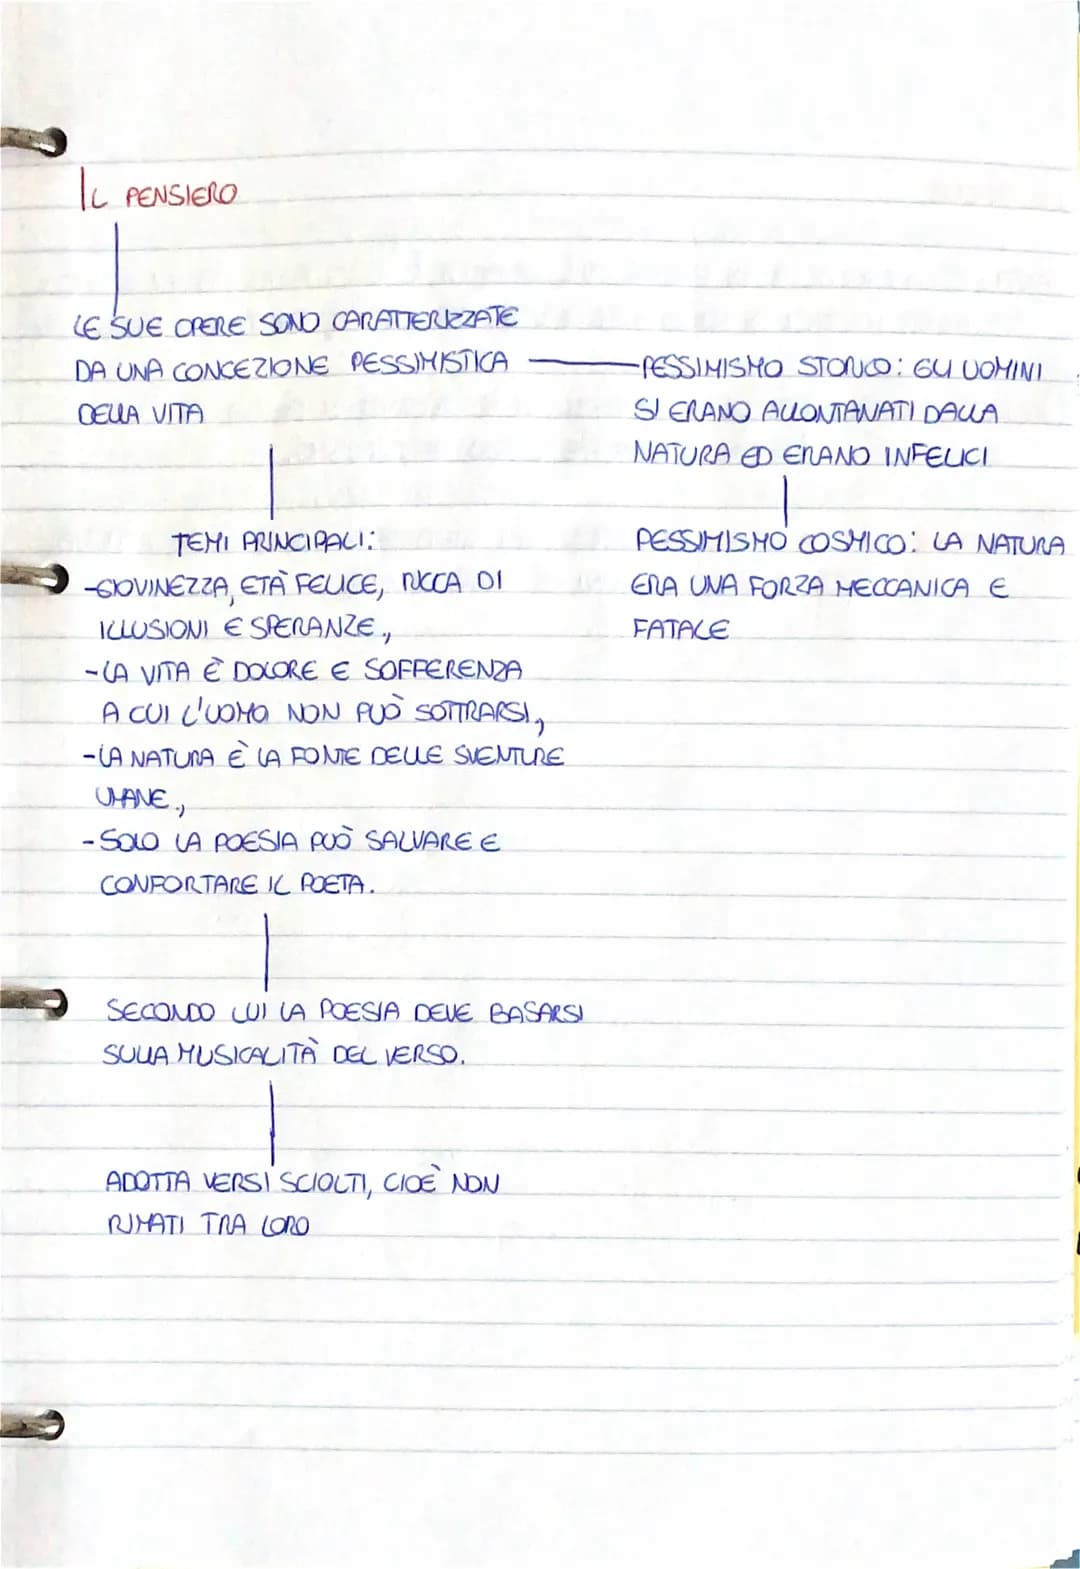 IL PENSIERO
LE SUE OPERE SONO CARATTERIZZATE
DA UNA CONCEZIONE PESSIMISTICA
DELLA VITA
PESSIMISMO STORICO: GLI UOMINI
SI ERANO ALLONTANATI DALLA
NATURA ED ERANO INFELICI
PESSIMISMO COSMICO: LA NATURA
ERA UNA FORZA MECCANICA E
FATALE
TEMI PRINCIPALI:
-GIOVINEZZA, ETÀ FELICE, RICCA DI
ILLUSIONI E SPERANZE,
-LA VITA È DOLORE E SOFFERENZA
A CUI L'UOMO NON PUÒ SOTTRARSI,
-LA NATURA È LA FONTE DELLE SVENTURE
UMANE,
-SOLO LA POESIA PUÒ SALVARE E
CONFORTARE IL POETA.
SECONDO LUI LA POESIA DEVE BASARSI
SULLA MUSICALITÀ DEL VERSO.
ADOTTA VERSI SCIOLTI, CIOÈ NON
RIMATI TRA LORO